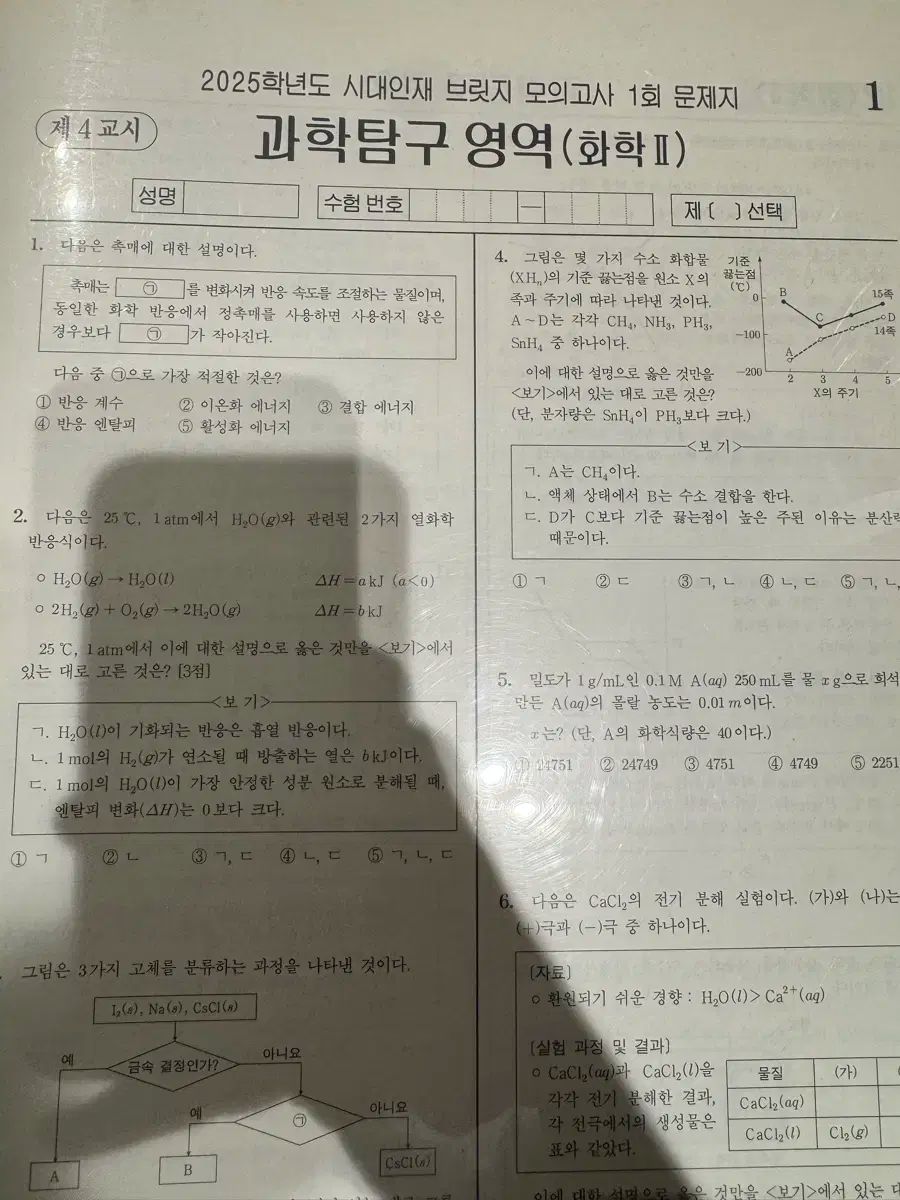 2025학년도 시대인재 브릿지 모의고사 1회 문제지
1
제 4 교시
과학탐구 영역(화학Ⅱ)
성명
수험 번호
—
제 ( ) 선택
1. 다음은 촉매에 대한 설명이다.
촉매는 ㉠ 를 변화시켜 반응 속도를 조절하는 물질이며,
동일한 화학 반응에서 정촉매를 사용하면 사용하지 않은
경우보다 ㉠ 가 작아진다.
다음 중 ㉠으로 가장 적절한 것은?
① 반응 계수 ② 이온화 에너지 ③ 결합 에너지
④ 반응 엔탈피 ⑤ 활성화 에너지
2. 다음은 25℃, 1atm에서 H₂O(g)와 관련된 2가지 열화학
반응식이다.
○ H₂O(g) → H₂O(l) ΔH = a kJ (a<0)
○ 2H₂(g) + O₂(g) → 2H₂O(g) ΔH = b kJ
25℃, 1atm에서 이에 대한 설명으로 옳은 것만을 <보기>에서
있는 대로 고른 것은? [3점]
<보 기>
ㄱ. H₂O(l)이 기화되는 반응은 흡열 반응이다.
ㄴ. 1mol의 H₂(g)가 연소될 때 방출하는 열은 b kJ이다.
ㄷ. 1mol의 H₂O(l)이 가장 안정한 성분 원소로 분해될 때,
엔탈피 변화(ΔH)는 0보다 크다.
① ㄱ ② ㄴ ③ ㄱ, ㄷ ④ ㄴ, ㄷ ⑤ ㄱ, ㄴ, ㄷ
그림은 3가지 고체를 분류하는 과정을 나타낸 것이다.
I₂(s), Na(s), CsCl(s)
예
금속 결정인가?
아니요
예
㉠
아니요
A
B
CsCl(s)
4. 그림은 몇 가지 수소 화합물
(XHₙ)의 기준 끓는점을 원소 X의
족과 주기에 따라 나타낸 것이다.
A~D는 각각 CH₄, NH₃, PH₃,
SnH₄ 중 하나이다.
이에 대한 설명으로 옳은 것만을
<보기>에서 있는 대로 고른 것은?
(단, 분자량은 SnH₄이 PH₃보다 크다.)
기준
끓는점
(℃)
0
-100
-200
B
C
A
15족
D
14족
2 3 4 5
X의 주기
<보 기>
ㄱ. A는 CH₄이다.
ㄴ. 액체 상태에서 B는 수소 결합을 한다.
ㄷ. D가 C보다 기준 끓는점이 높은 주된 이유는 분산
때문이다.
① ㄱ ② ㄷ ③ ㄱ, ㄴ ④ ㄴ, ㄷ ⑤ ㄱ, ㄴ,
5. 밀도가 1g/mL인 0.1M A(aq) 250mL를 물 x g으로 희석
만든 A(aq)의 몰랄 농도는 0.01m이다.
x는? (단, A의 화학식량은 40이다.)
① 24751 ② 24749 ③ 4751 ④ 4749 ⑤ 2251
6. 다음은 CaCl₂의 전기 분해 실험이다. (가)와 (나)는
(+)극과 (-)극 중 하나이다.
[자료]
○ 환원되기 쉬운 경향 : H₂O(l) > Ca²⁺(aq)
[실험 과정 및 결과]
○ CaCl₂(aq)과 CaCl₂(l)을
각각 전기 분해한 결과,
각 전극에서의 생성물은
표와 같았다.
물질 (가)
CaCl₂(aq)
CaCl₂(l) Cl₂(g)
이에 대한 설명으로 옳은 것만을 <보기>에서 있는